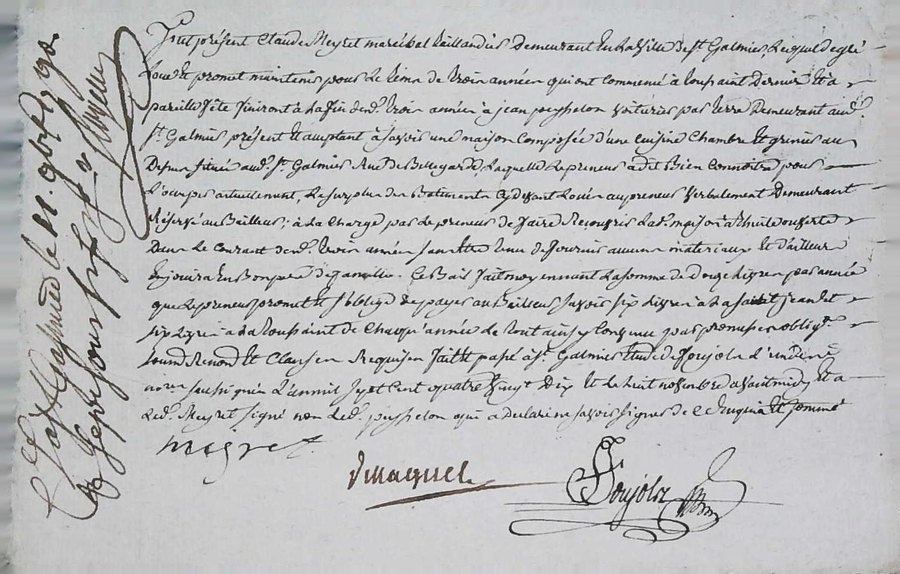 Fut présent Claude Meyret maréchal taillandier Demeurant En la Ville de St Galmier, Lequel de gré
Loue Et promet maintenir pour Le tems de trois années qui ont commencé à toussaint Dernier Et à
pareille fête finiront à La fin desd. trois années à jean peysselon voiturier par terre Demeurant aud.
St Galmier présent Et acceptant à savoir une maison Composée d'une Cuisine Chambre Et grenier au
Dessus située aud. St Galmier Rue de Bellegarde Laquelle Le preneur a dit Bien Connoitre pour
L'occuper actuellement, Le surplus des Batiments Cy devant Loués au preneur verbalement Demeurant
Réservé au Bailleur; à La Charge par Le preneur de faire Recouvrir Lad. maison à thuile ouverte
Dans Le Courant desd. trois années sans être tenu de fournir aucuns materiaux Et d'ailleurs
En jouira En Bon pere de famille. Ce Bail fait moyennant La somme de douze Livres par année
que Le preneur promet Et s'oblige de payer au Bailleur savoir six Livres à La saint jean Et
six Livres à La toussaint de Chaque année Le tout ainsy Convenu par promesses oblig.
Soumd Renond Et Clauses Requises fait Et passé à St Galmier Etude de Soujols L'un des
nores soussignés L'an mil sept Cent quatre vingt Dix Et Le huit novembre avant midy Et a
Led. Meyret signé non Led. peysselon qui a déclaré ne savoir signer de Ce Enquis Et sommé
meyret
Soujols